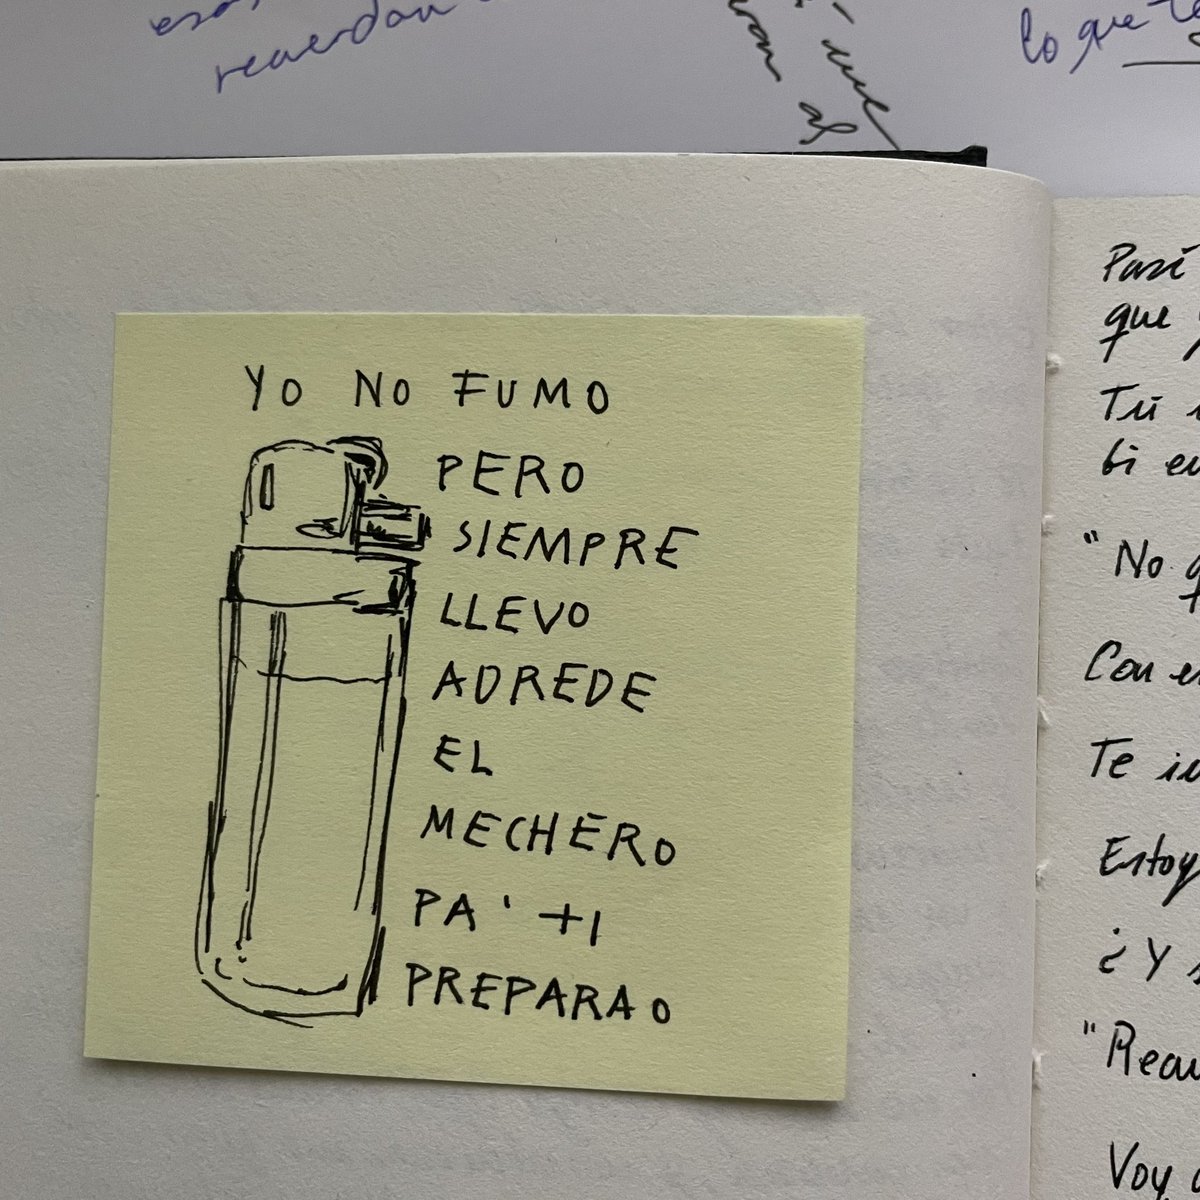 recuerdan
al
lo que te
YO NO FUMO
PERO
SIEMPRE
LLEVO
ADREDE
EL
MECHERO
PA' TI
PREPARAO
que
Tú
"No
Con
Te
Estoy
¿Y
Voy